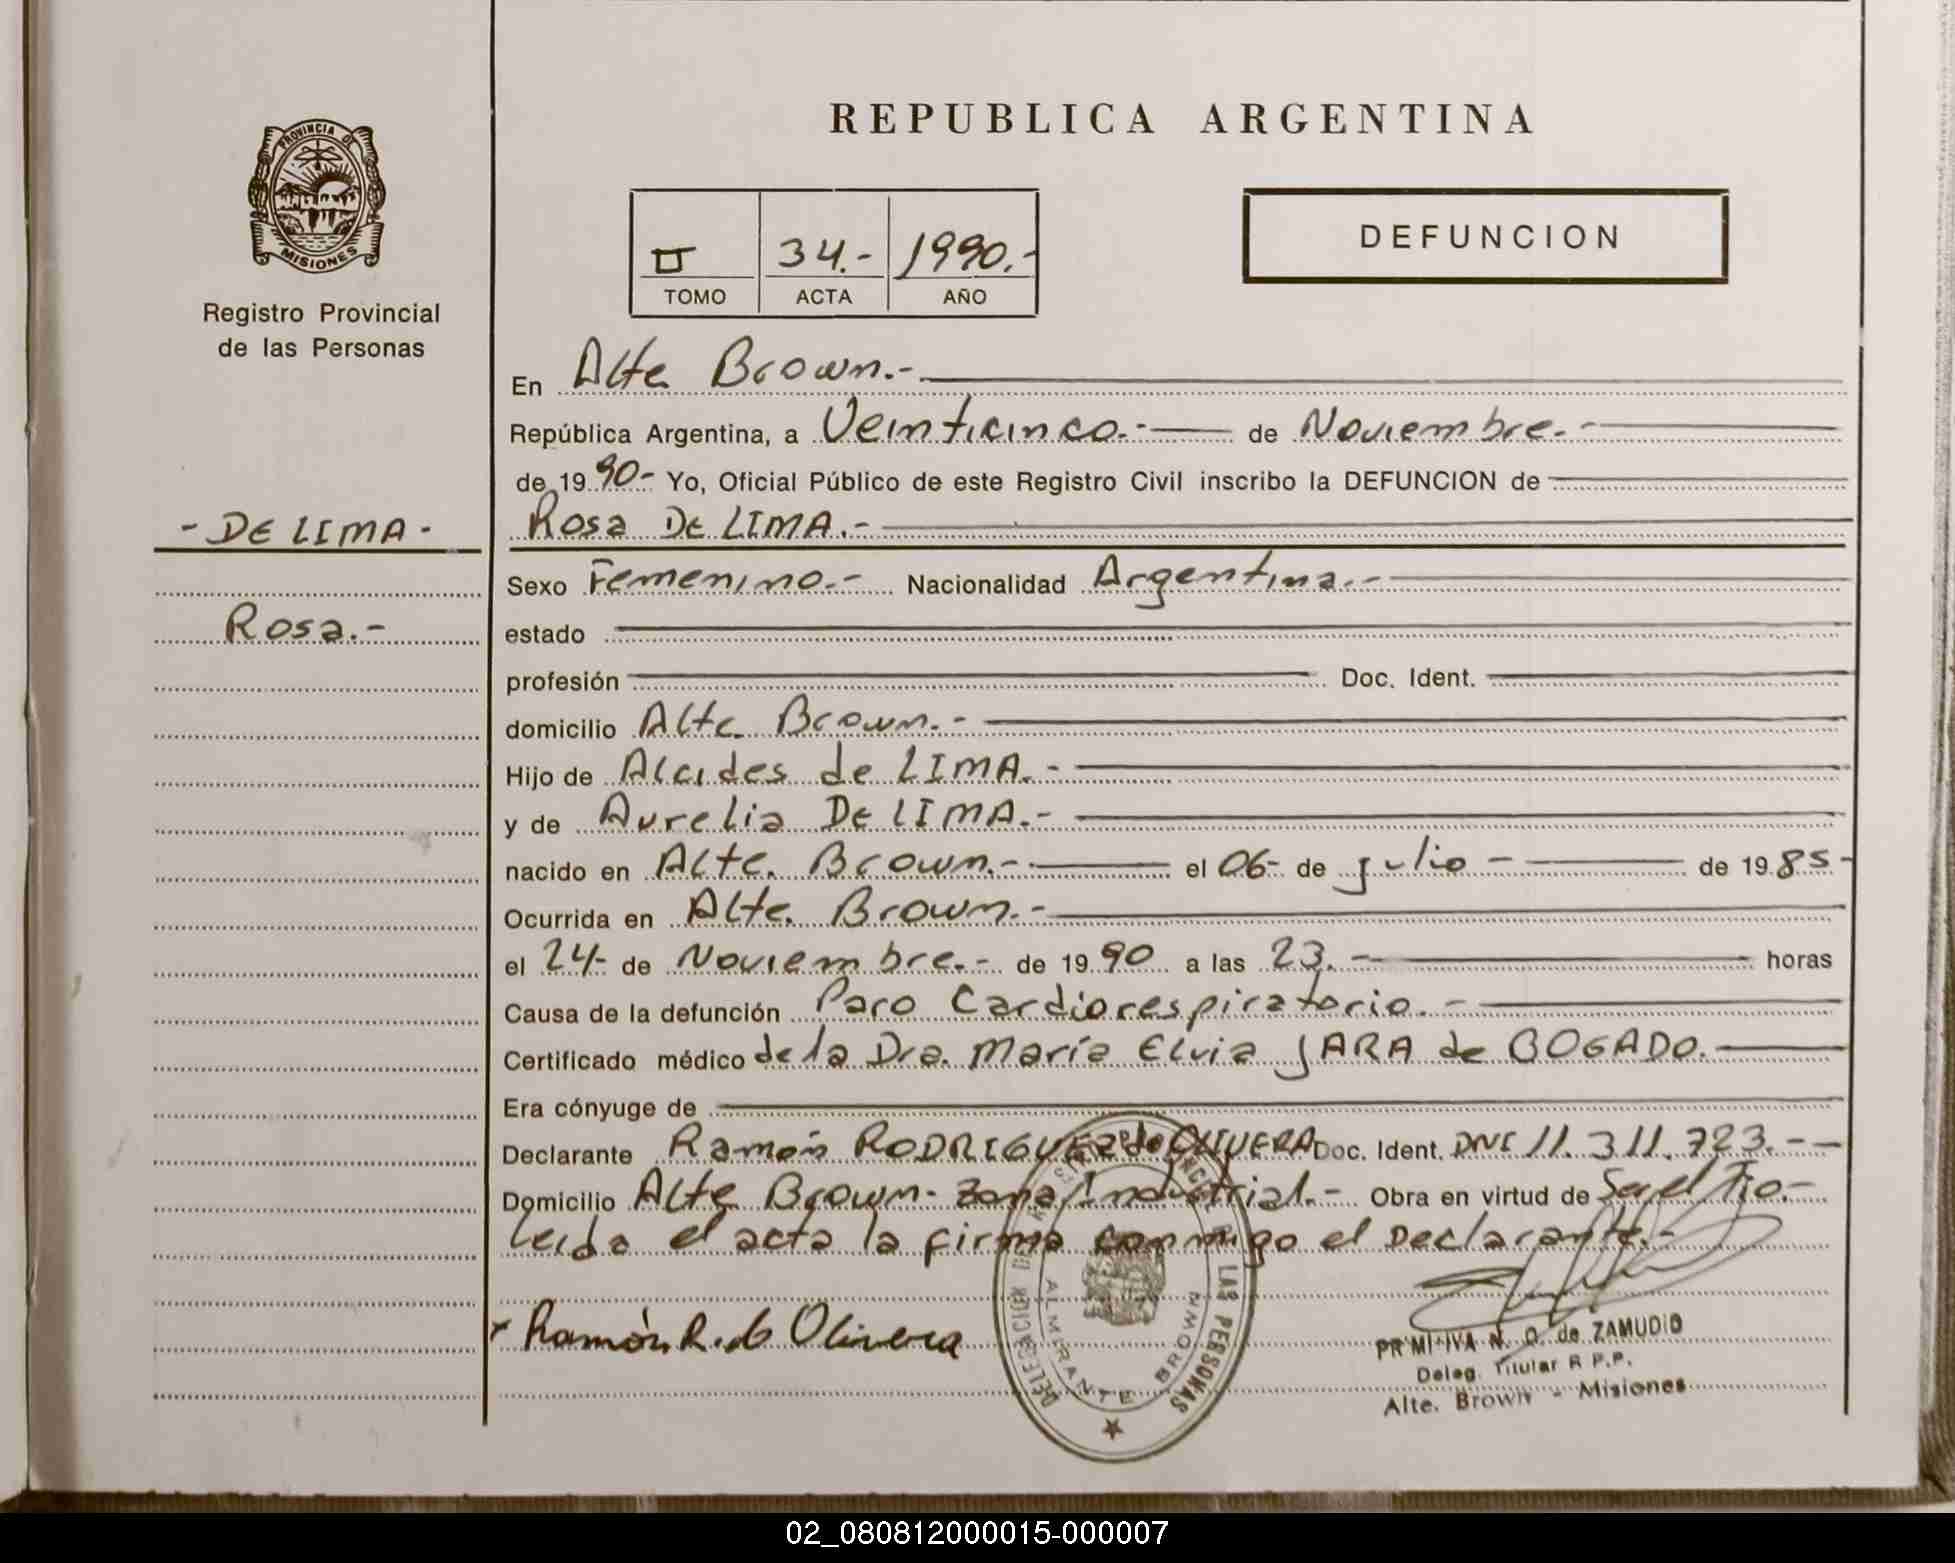 REPUBLICA ARGENTINA
PROVINCIA DE
MISIONES
Registro Provincial
de las Personas
II 34.- 1990.-
TOMO ACTA AÑO
DEFUNCION
- DE LIMA -
Rosa.-
En Alte Brown.-
República Argentina, a Veinticinco.- de Noviembre.-
de 19 90- Yo, Oficial Público de este Registro Civil inscribo la DEFUNCION de
Rosa DE LIMA.-
Sexo Femenino.- Nacionalidad Argentina.-
estado
profesión Doc. Ident.
domicilio Alte. Brown.-
Hijo de Alcides de LIMA.-
y de Aurelia DE LIMA.-
nacido en Alte. Brown.- el 06- de julio - de 19 85-
Ocurrida en Alte. Brown.-
el 24- de Noviembre.- de 19 90 a las 23.- horas
Causa de la defunción Paro Cardiorespiratorio.-
Certificado médico de la Dra. María Elvia JARA de BOGADO.
Era cónyuge de
Declarante Ramón RODRIGUEZ de OLIVERA Doc. Ident. DNI 11.311.723.-
Domicilio Alte Brown- Zona Industrial.- Obra en virtud de
Leida el acta la firma conmigo el Declarante.-
Ramón R. de Olivera
ALMIRANTE BROWN
LAS PERSONAS
PRIMITIVA N. O. de ZAMUDIO
Deleg. Titular R P.P.
Alte. Brown - Misiones
02_080812000015-000007